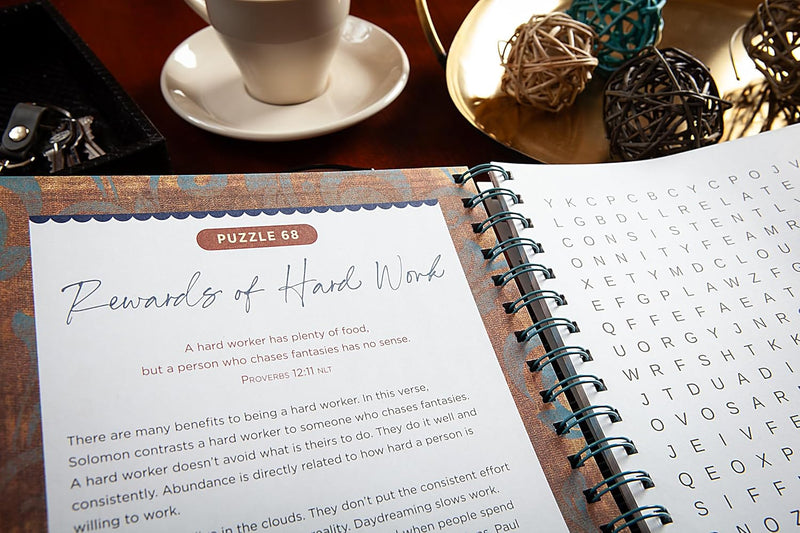 PUZZLE 68
Rewards of Hard Work
A hard worker has plenty of food,
but a person who chases fantasies has no sense.
PROVERBS 12:11 NLT
There are many benefits to being a hard worker. In this verse,
Solomon contrasts a hard worker to someone who chases fantasies.
A hard worker doesn't avoid what is theirs to do. They do it well and
consistently. Abundance is directly related to how hard a person is
willing to work.
live in the clouds. They don't put the consistent effort
Daydreaming slows work.
when people spend
Paul
Y K C P C B C Y C P O J V
L G B D L L R E L A T E
C O N S I S T E N T L
O N N I T Y F E A M R
X E T Y M D C L O U
E F G P L A W Z F G
Q F F E F A E A T
U O R G Y J N R
W R F S H T K K
J T D U A D I
O V O S A R
J E I V F E
Q E O X P
S I F F
N O Z